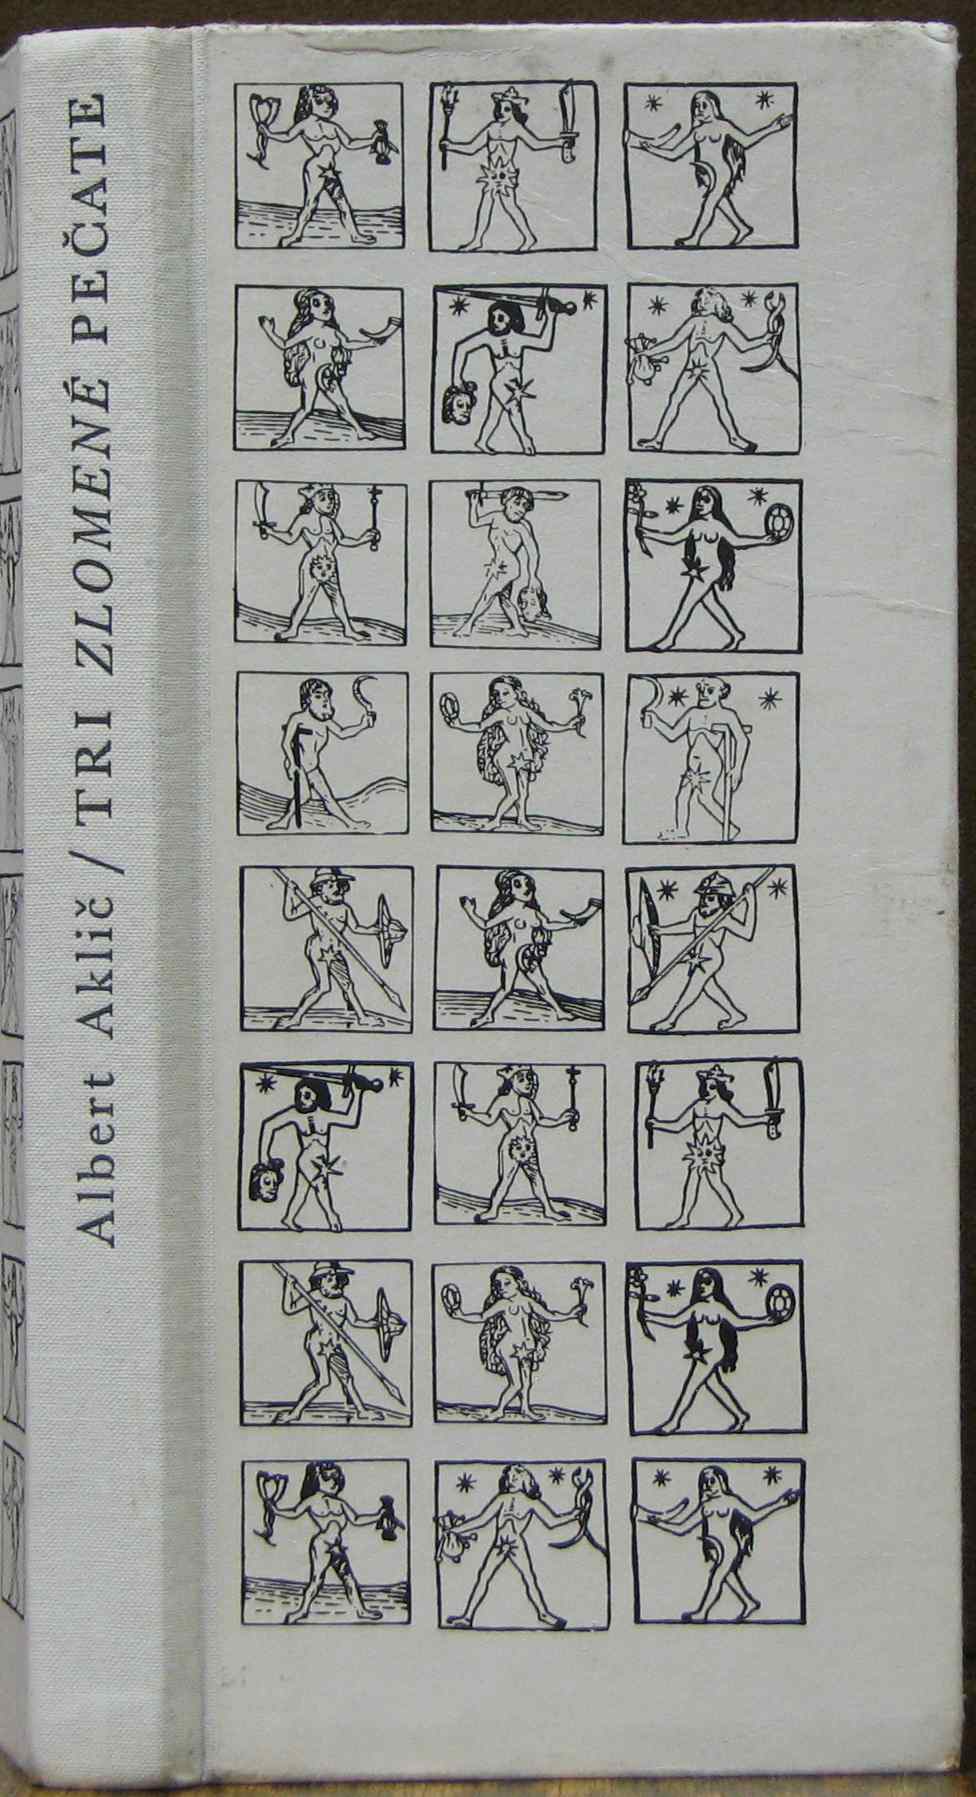 Albert Aklič / TRI ZLOMENÉ PEČATE